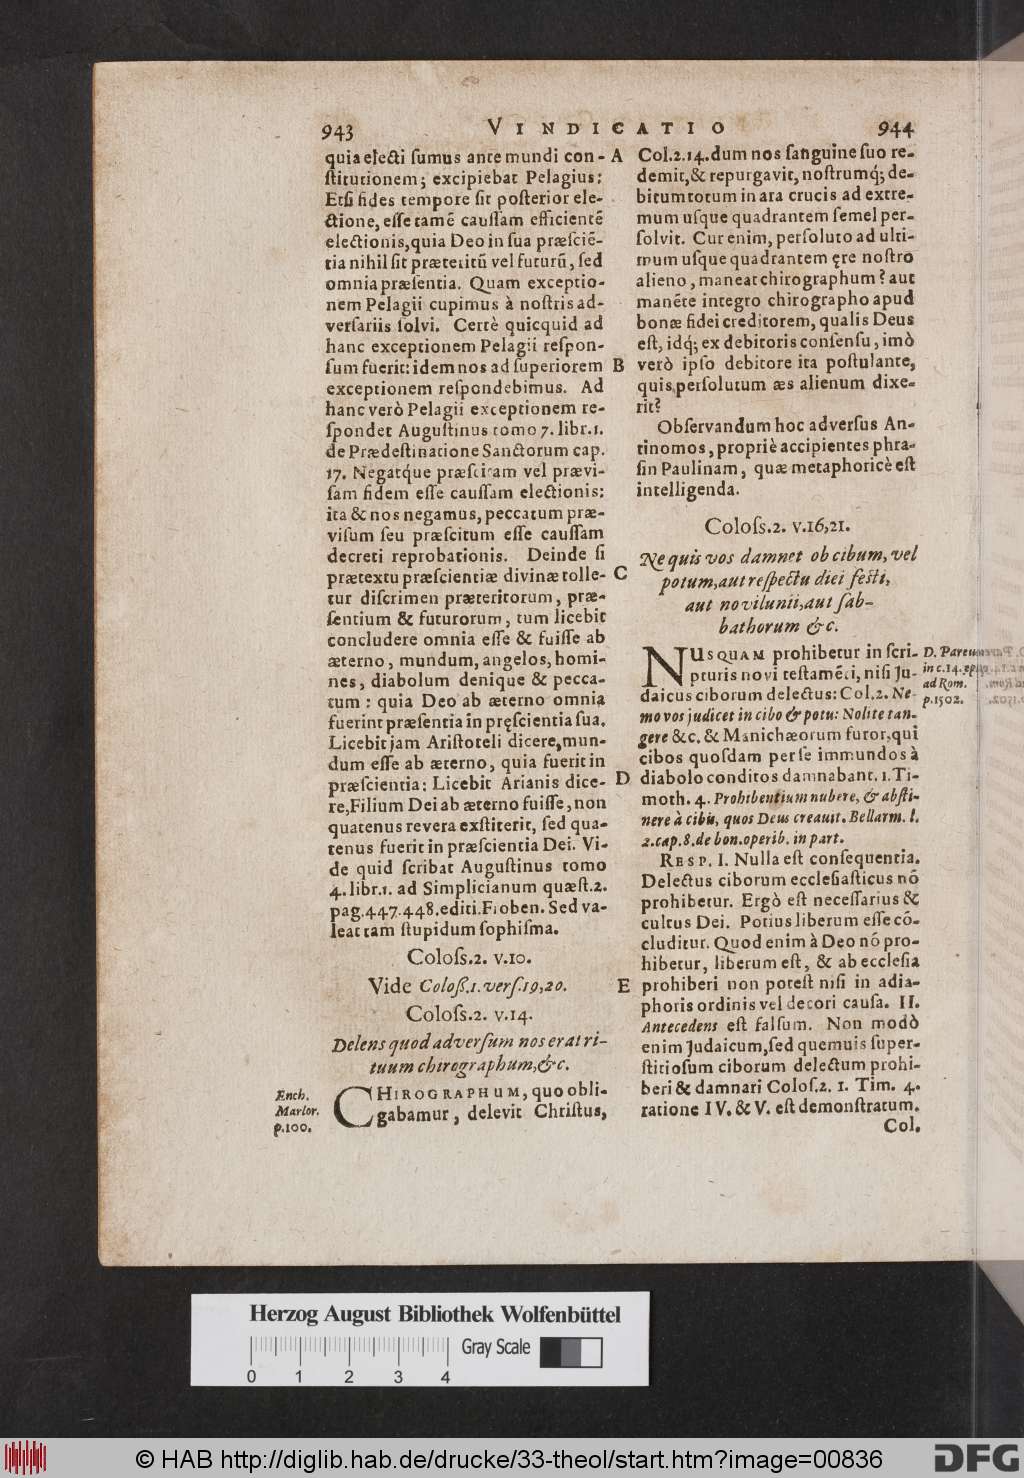 943 VINDICATIO 944
quia electi sumus ante mundi con-
stitutionem; excipiebat Pelagius:
Etsi fides tempore sit posterior ele-
ctione, esse tamē caussam efficientē
electionis, quia Deo in sua præsciē-
tia nihil sit præteritū vel futurū, sed
omnia præsentia. Quam exceptio-
nem Pelagii cupimus à nostris ad-
versariis solvi. Certè quicquid ad
hanc exceptionem Pelagii respon-
sum fuerit: idem nos ad superiorem
exceptionem respondebimus. Ad
hanc verò Pelagii exceptionem re-
spondet Augustinus tomo 7. libr. 1.
de Prædestinatione Sanctorum cap.
17. Negatq́ue præscitam vel prævi-
sam fidem esse caussam electionis:
ita & nos negamus, peccatum præ-
visum seu præscitum esse caussam
decreti reprobationis. Deinde si
prætextu præscientiæ divinæ tolle-
tur discrimen præteritorum, præ-
sentium & futurorum, tum licebit
concludere omnia esse & fuisse ab
æterno, mundum, angelos, homi-
nes, diabolum denique & pecca-
tum: quia Deo ab æterno omnia
fuerint præsentia in pręscientia sua.
Licebit jam Aristoteli dicere, mun-
dum esse ab æterno, quia fuerit in
præscientia: Licebit Arianis dice-
re, Filium Dei ab æterno fuisse, non
quatenus revera exstiterit, sed qua-
tenus fuerit in præscientia Dei. Vi-
de quid scribat Augustinus tomo
4. libr. 1. ad Simplicianum quæst. 2.
pag. 447. 448. editi. Froben. Sed va-
leat tam stupidum sophisma.
Coloss. 2. v. 10.
Vide Coloß. 1. vers. 19, 20.
Coloss. 2. v. 14.
Delens quod adversum nos erat ri-
tuum chirographum, &c.
Ench.
Marlor.
p. 100.
CHIROGRAPHUM, quo obli-
gabamur, delevit Christus,
A
B
C
D
E
Col. 2. 14. dum nos sanguine suo re-
demit, & repurgavit, nostrumq́; de-
bitum totum in ara crucis ad extre-
mum usque quadrantem semel per-
solvit. Cur enim, persoluto ad ulti-
mum usque quadrantem ęre nostro
alieno, maneat chirographum? aut
manēte integro chirographo apud
bonæ fidei creditorem, qualis Deus
est, idq́; ex debitoris consensu, imò
verò ipso debitore ita postulante,
quis persolutum æs alienum dixe-
rit?
Observandum hoc adversus An-
tinomos, propriè accipientes phra-
sin Paulinam, quæ metaphoricè est
intelligenda.
Coloss. 2. v. 16, 21.
Ne quis vos damnet ob cibum, vel
potum, aut respectu diei festi,
aut novilunii, aut sab-
bathorum &c.
NUSQUAM prohibetur in scri-
pturis novi testamēti, nisi Ju-
daicus ciborum delectus: Col. 2. Ne-
mo vos judicet in cibo & potu: Nolite tan-
gere &c. & Manichæorum furor, qui
cibos quosdam per se immundos à
diabolo conditos damnabant. 1. Ti-
moth. 4. Prohibentium nubere, & absti-
nere à cibis, quos Deus creavit. Bellarm. l.
2. cap. 8. de bon. operib. in part.
RESP. I. Nulla est consequentia.
Delectus ciborum ecclesiasticus nō
prohibetur. Ergò est necessarius &
cultus Dei. Potius liberum esse cō-
cluditur. Quod enim à Deo nō pro-
hibetur, liberum est, & ab ecclesia
prohiberi non potest nisi in adia-
phoris ordinis vel decori causa. II.
Antecedens est falsum. Non modò
enim Judaicum, sed quemuis super-
stitiosum ciborum delectum prohi-
beri & damnari Colos. 2. 1. Tim. 4.
ratione IV. & V. est demonstratum.
Col.
D. Pareus
in c. 14. epist.
ad Rom.
p. 1502.
Herzog August Bibliothek Wolfenbüttel
0 1 2 3 4
Gray Scale
© HAB http://diglib.hab.de/drucke/33-theol/start.htm?image=00836
DFG